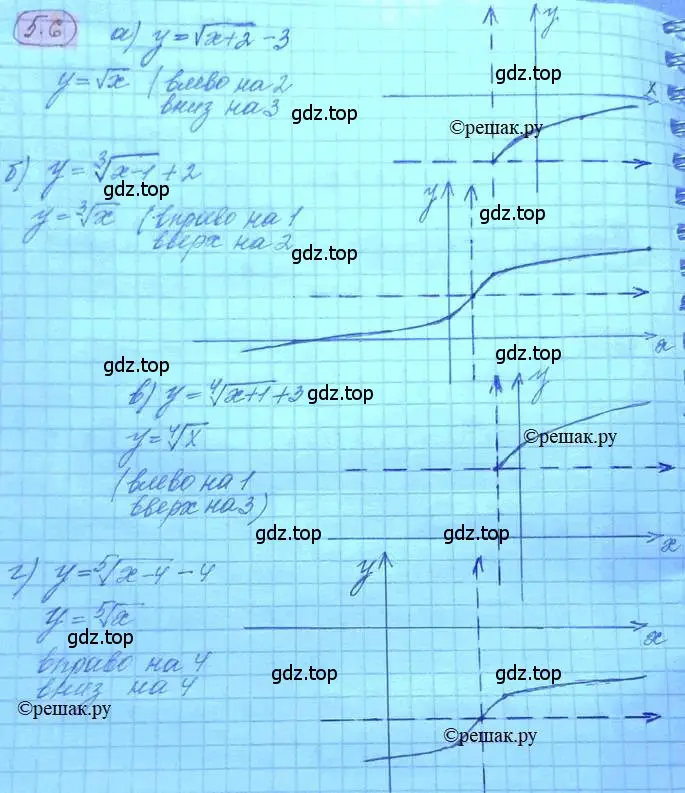 5.6
а) y = √(x+2) - 3
y = √x (влево на 2
вниз на 3
y
x
gdz.top
gdz.top
©решак.ру
б) y = ∛(x-1) + 2
gdz.top
y = ∛x (вправо на 1
вверх на 2
y
gdz.top
gdz.top
x
gdz.top
gdz.top
в) y = ∜(x+1) + 3
gdz.top
y = ∜x
(влево на 1
вверх на 3)
y
©решак.ру
gdz.top
gdz.top
x
г) y = ⁵√(x-4) - 4
y = ⁵√x
gdz.top
вправо на 4
вниз на 4
©решак.ру
y
x
gdz.top
gdz.top
©решак.ру